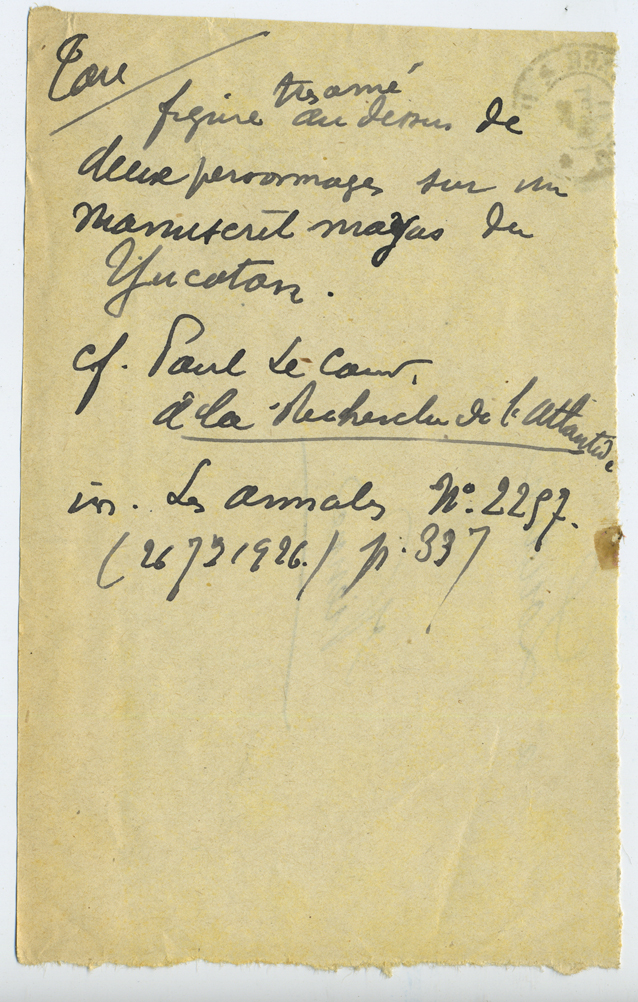 Tore
tres orné
figure au dessus de
deux personnages sur un
manuscrit mayas du
Yucatan.
cf. Paul Le Cour,
à la Recherche de l'Atlantide
in. Les annales N°. 2297.
1926.) p. 337